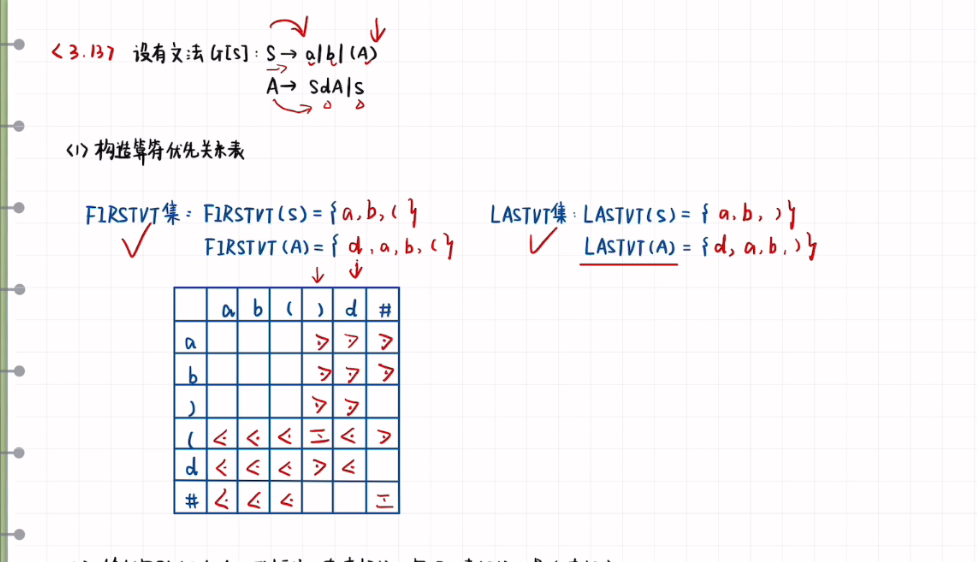 <3.13> 设有文法G[S]: S→ a|b|(A)
A→ SdA|S
(1) 构造算符优先关系表
FIRSTVT集: FIRSTVT(S) = {a,b,(}
FIRSTVT(A) = {d,a,b,(}
LASTVT集: LASTVT(S) = {a,b,)}
LASTVT(A) = {d,a,b,)}
a b ( ) d #
a ⋗ ⋗ ⋗
b ⋗ ⋗ ⋗
) ⋗ ⋗
( ⋖ ⋖ ⋖ = ⋖ ⋗
d ⋖ ⋖ ⋖ ⋗ ⋖
# ⋖ ⋖ ⋖ =